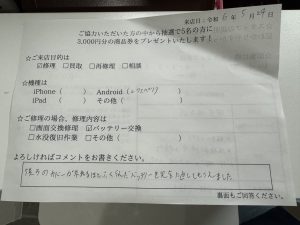 来店日:令和 6年 5月24日
ご協力いただいた方の中から抽選で5名の方に
3,000円分の商品券をプレゼントいたします!
☆ご来店目的は
☑修理 □買取 □再修理 □相談
☆機種は
iPhone( ) Android(エクスペリア)
iPad ( ) その他( )
☆ご修理の場合、修理内容は
□画面交換修理 ☑バッテリー交換
□水没復旧作業 □その他( )
よろしければコメントをお書きください。
後ろのカバーが
バッテリーを完全に直してもらえました
裏面もご回答ください。